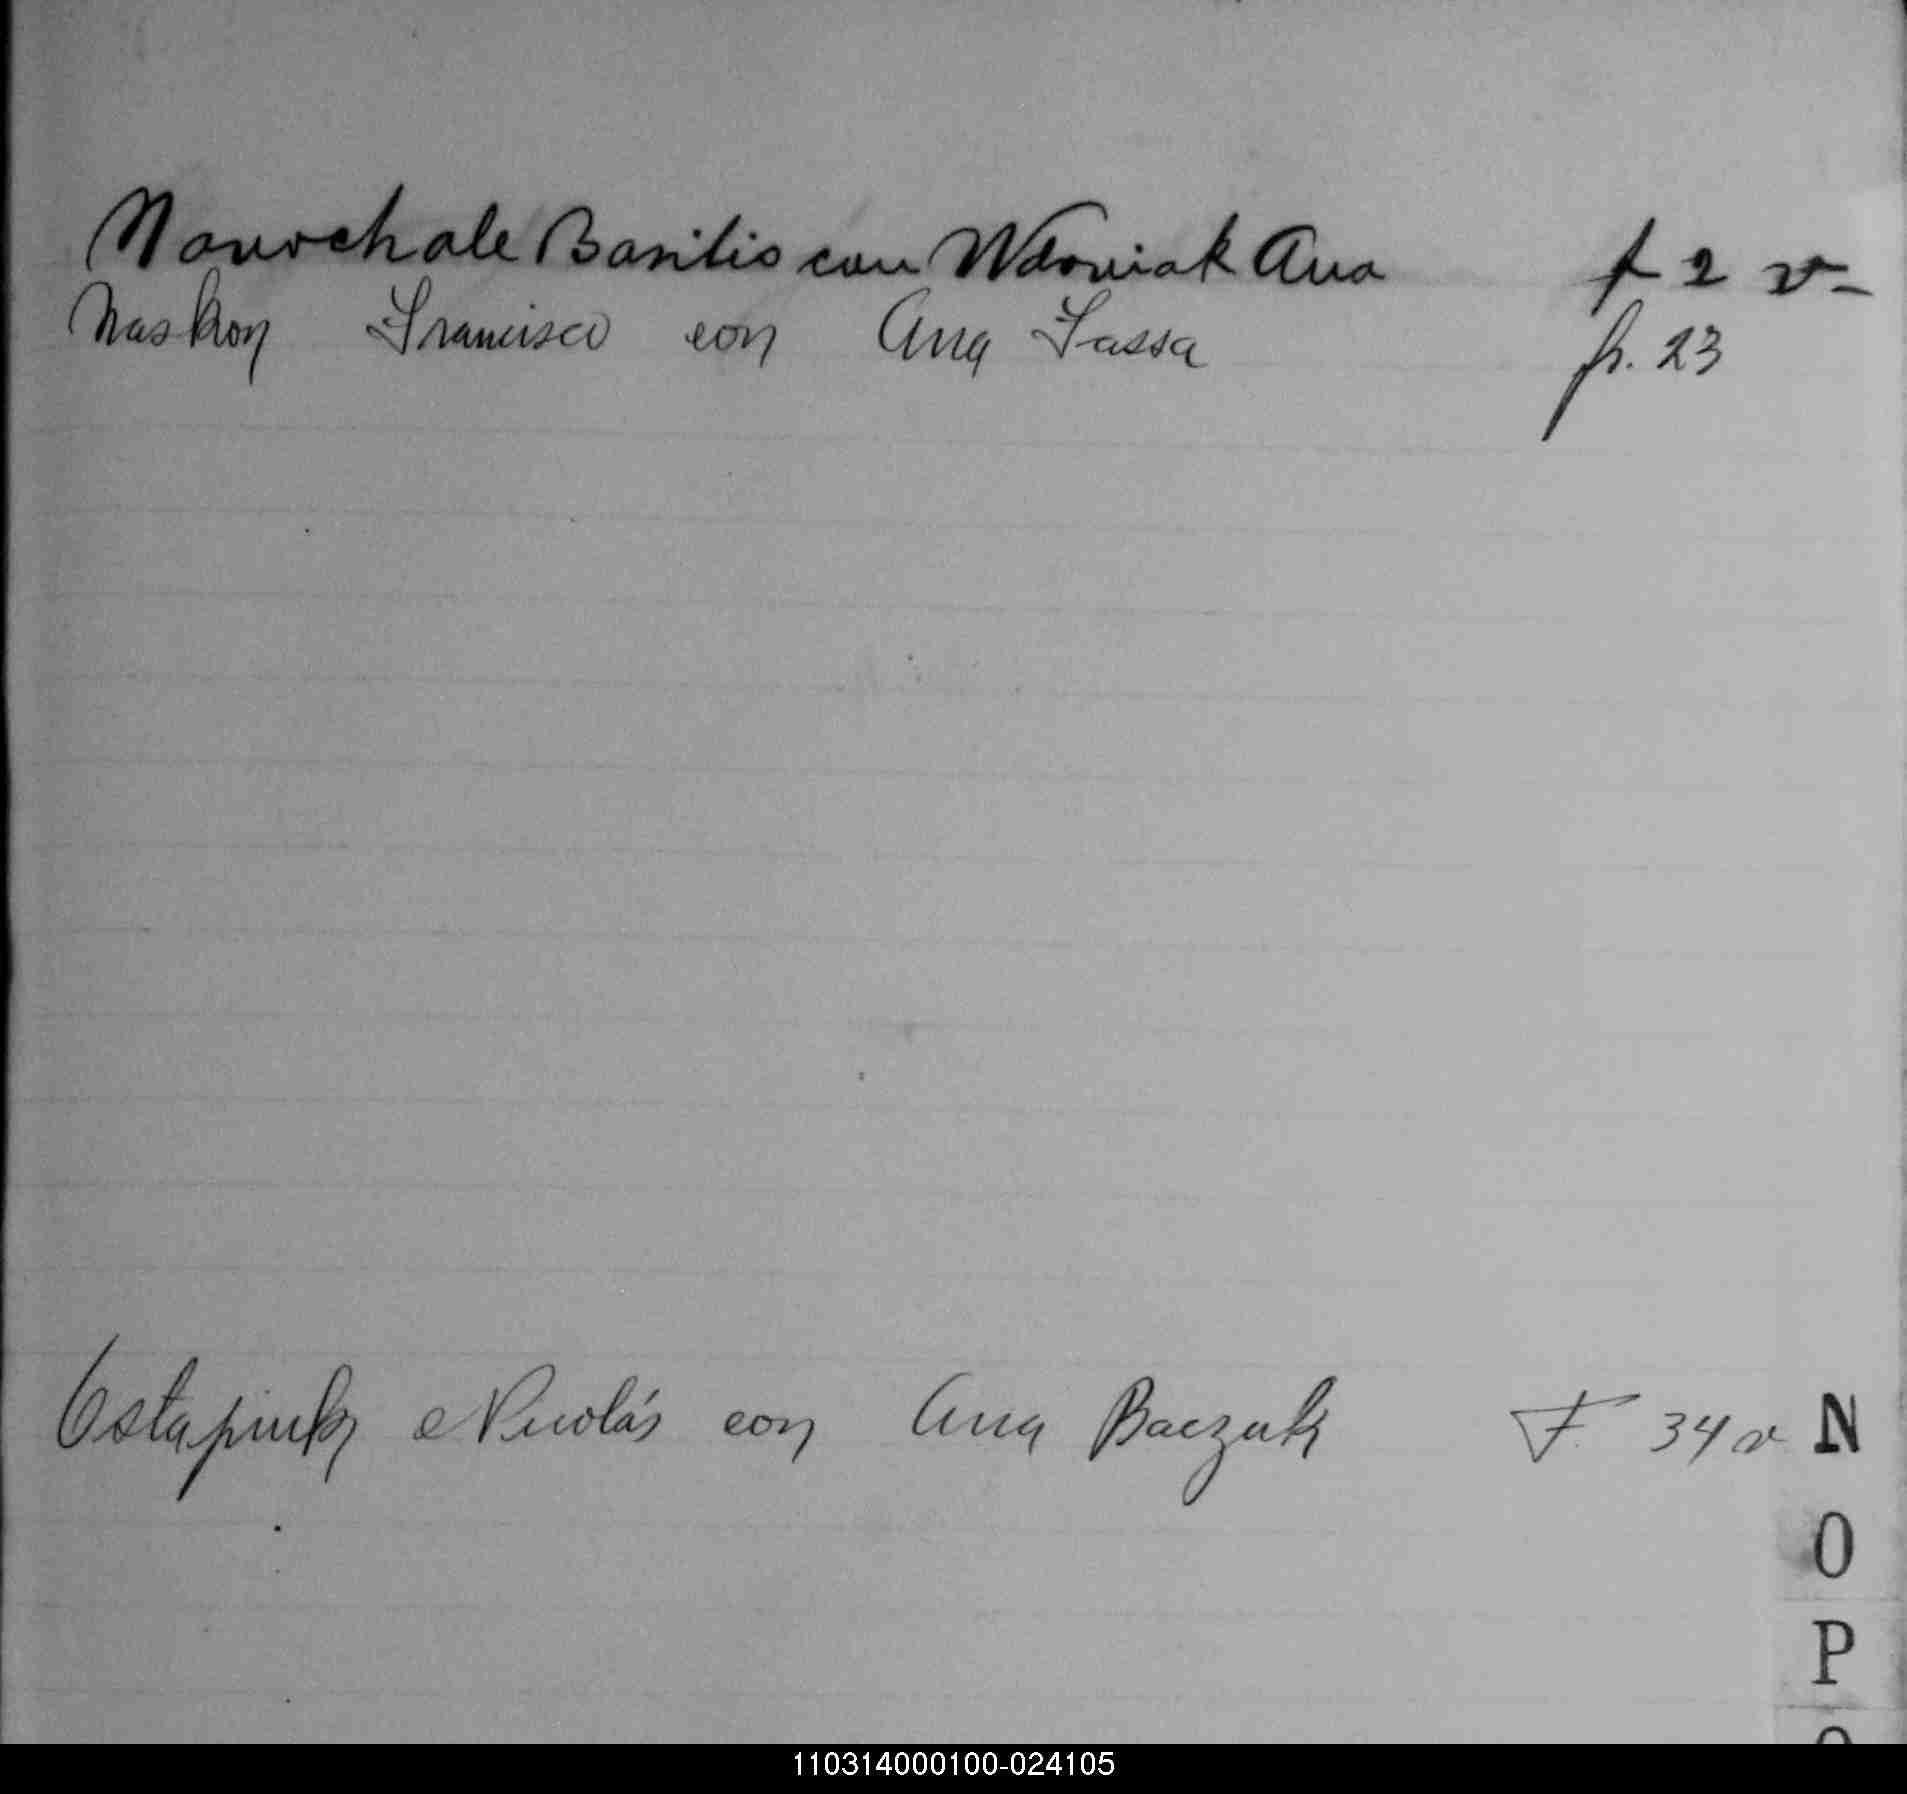 Nawochale Basilio con Wdowiak Ana f 2 v-
Naskon Francisco con Ana Sassa fr. 23
Ostapiuk Nicolás con Ana Baczuk F. 34 v
N
O
P
110314000100-024105